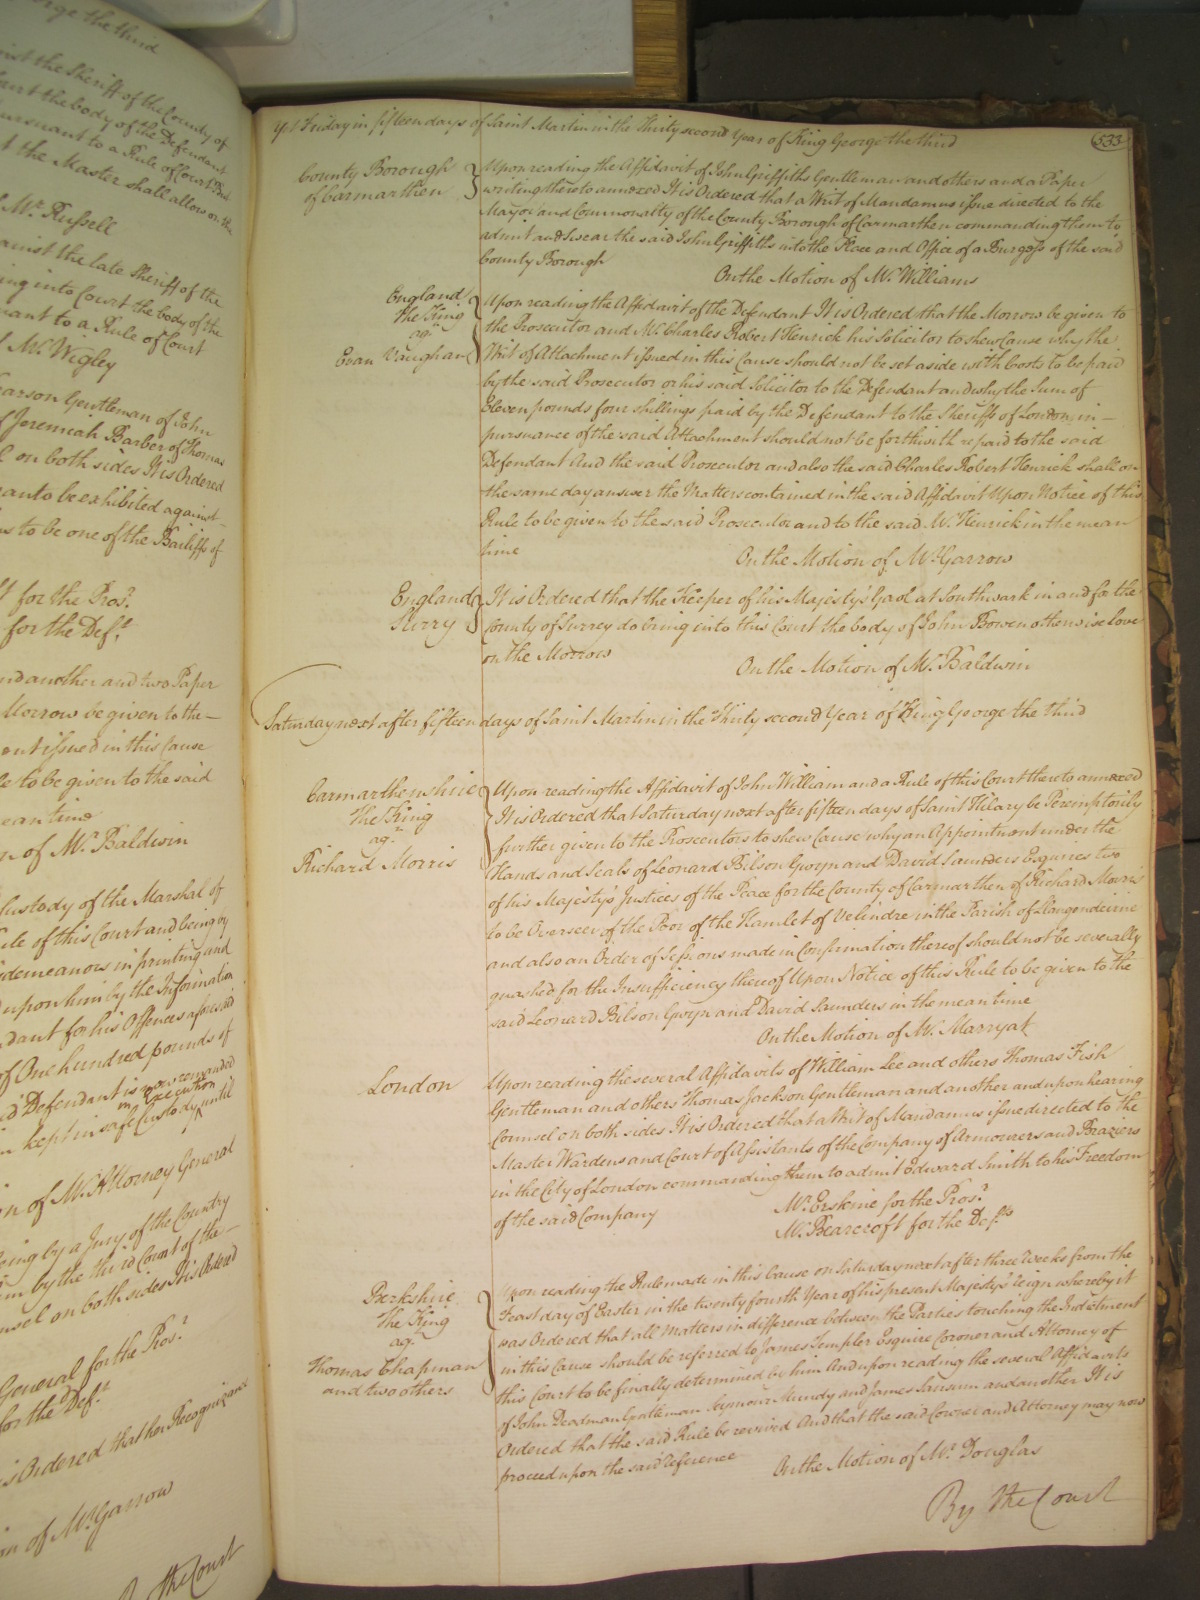 orge the third
inst the Sheriff of the County of
Court the body of the Defendant
pursuant to a Rule of Court
t the Master shall allow on the
Mr. Russell
ainst the late Sheriff of the
ing into Court the body of the
uant to a Rule of Court
Mr. Wigley
earson Gentleman of John
f Jeremiah Barber of Thomas
l on both sides It is Ordered
ranto be exhibited against
as to be one of the Bailiffs of
for the Pros.r
for the Def.t
nd another and two Paper
Morrow be given to the
ent issued in this Cause
le to be given to the said
ean time
n of Mr. Baldwin
Custody of the Marshal of
ule of this Court and being by
sdemeanors in printing and
d upon him by the Information
ndant for his Offences aforesaid
of One hundred pounds of
d Defendant is now remanded
in Execution
kept in safe Custody until
n of Mr. Attorney General
being by a Jury of the Country
m by the third Count of the
unsel on both sides It is Ordered
General for the Pros.r
for the Def.t
is Ordered that her Recognizance
on of Mr. Garrow
By the Court
Yet Friday in fifteen days of Saint Martin in the Thirty second Year of King George the third
533
County Borough
of Carmarthen
Upon reading the Affidavit of John Griffiths Gentleman and others and a Paper
writing thereto annexed It is Ordered that a Writ of Mandamus issue directed to the
Mayor and Commonalty of the County Borough of Carmarthen commanding them to
admit and swear the said John Griffiths into the Place and Office of a Burgess of the said
County Borough
On the Motion of Mr. Williams
England
The King
ag.t
Evan Vaughan
Upon reading the Affidavit of the Defendant It is Ordered that the Morrow be given to
the Prosecutor and Mr. Charles Robert Henrick his Solicitor to shew Cause why the
Writ of Attachment issued in this Cause should not be set aside with Costs to be paid
by the said Prosecutor or his said Solicitor to the Defendant and why the Sum of
Eleven pounds four shillings paid by the Defendant to the Sheriffs of London in
pursuance of the said Attachment should not be forthwith repaid to the said
Defendant And the said Prosecutor and also the said Charles Robert Henrick shall on
the same day answer the Matters contained in the said Affidavit Upon Notice of this
Rule to be given to the said Prosecutor and to the said Mr. Henrick in the mean
time
On the Motion of Mr. Garrow
England
Surry
It is Ordered that the Keeper of his Majesty's Gaol at Southwark in and for the
County of Surrey do bring into this Court the body of John Bowen otherwise Love
on the Morrow
On the Motion of Mr. Baldwin
Saturday next after fifteen days of Saint Martin in the Thirty second Year of King George the third
Carmarthenshire
The King
ag.t
Richard Morris
Upon reading the Affidavit of John William and a Rule of this Court thereto annexed
It is Ordered that Saturday next after fifteen days of Saint Hilary be Peremptorily
further given to the Prosecutors to shew Cause why an Appointment under the
Hands and Seals of Leonard Bilson Gwyn and David Saunders Esquires two
of his Majesty's Justices of the Peace for the County of Carmarthen of Richard Morris
to be Overseer of the Poor of the Hamlet of Velindre in the Parish of Llangendeirne
and also an Order of Sessions made in Confirmation thereof should not be severally
quashed for the Insufficiency thereof Upon Notice of this Rule to be given to the
said Leonard Bilson Gwyn and David Saunders in the mean time
On the Motion of Mr. Marryat
London
Upon reading the several Affidavits of William Lee and others Thomas Fish
Gentleman and others Thomas Jackson Gentleman and another and upon hearing
Counsel on both sides It is Ordered that a Writ of Mandamus issue directed to the
Master Wardens and Court of Assistants of the Company of Armourers and Braziers
in the City of London commanding them to admit Edward Smith to his Freedom
of the said Company
Mr. Erskine for the Pros.r
Mr. Bearcroft for the Def.ts
Berkshire
The King
ag.t
Thomas Chapman
and two others
Upon reading the Rule made in this Cause on Saturday next after three Weeks from the
Feast day of Easter in the twenty fourth Year of his present Majesty's reign whereby it
was Ordered that all Matters in difference between the Parties touching the Indictment
in this Cause should be referred to James Templer Esquire Coroner and Attorney of
this Court to be finally determined by him And upon reading the several Affidavits
of John Deadman Gentleman Seymour Mundy and James and another It is
Ordered that the said Rule be revived And that the said Coroner and Attorney may now
proceed upon the said Reference
On the Motion of Mr. Douglas
By the Court